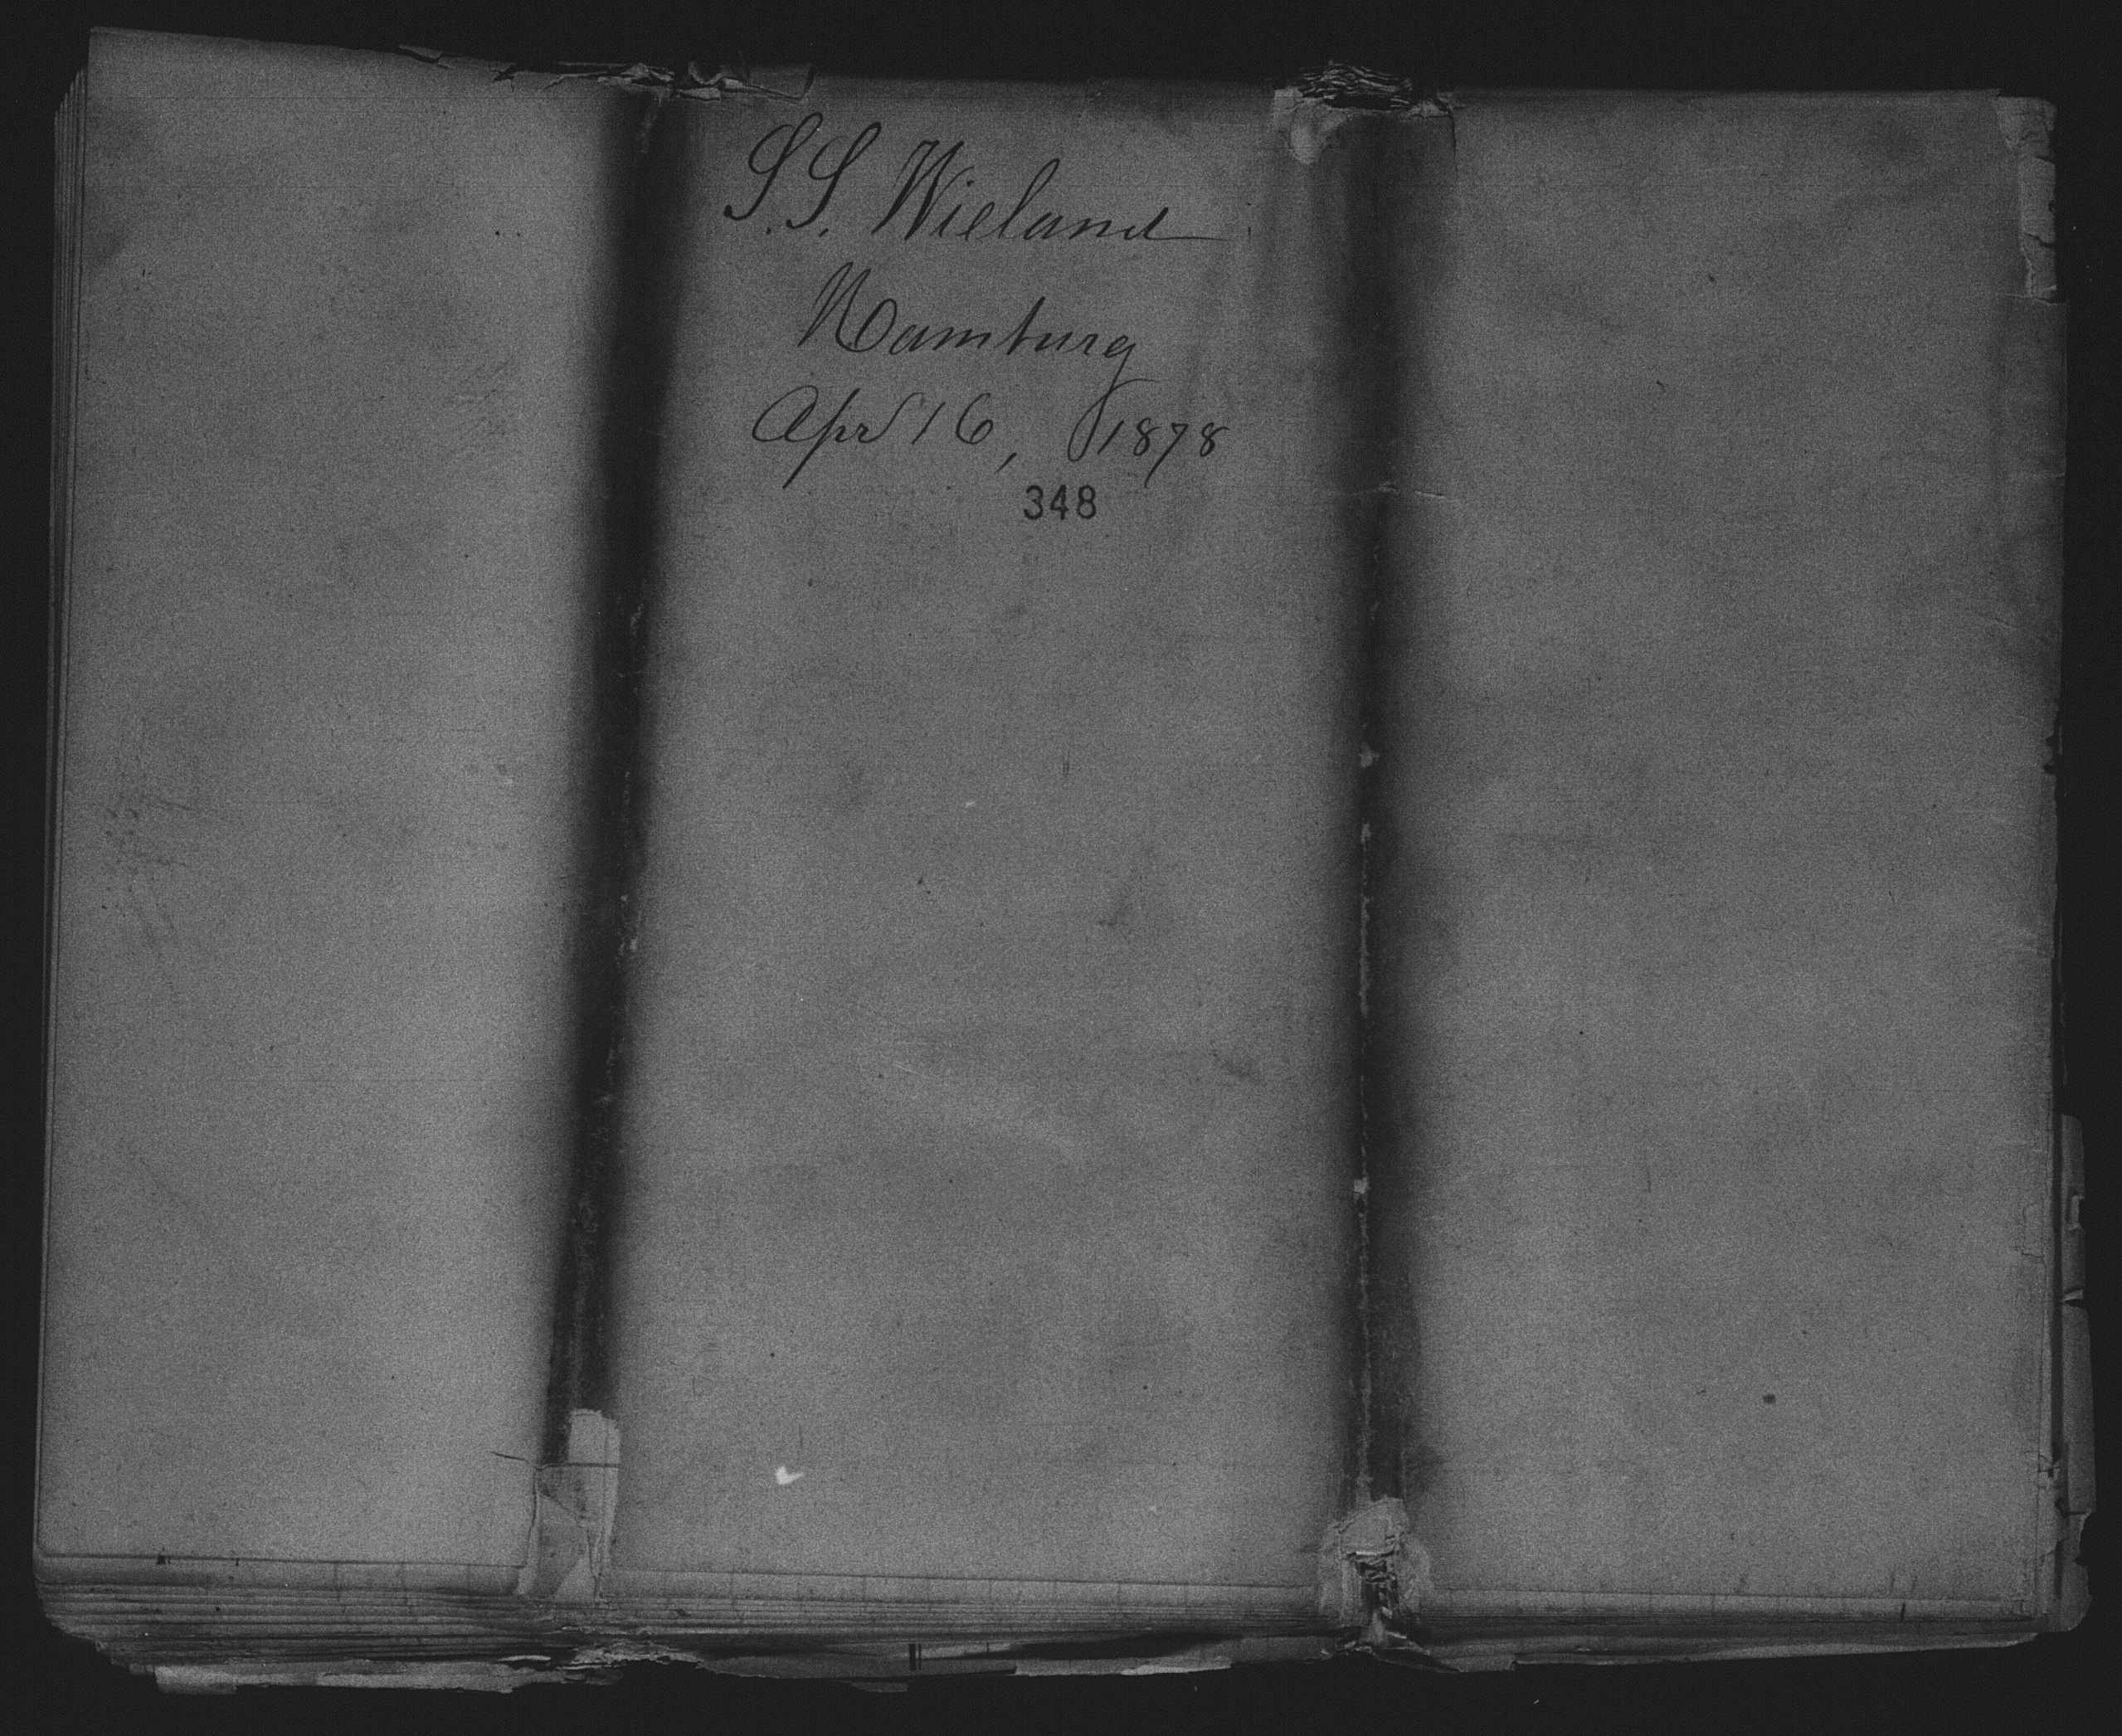 S.S. Wieland
Hamburg
Apr 16, 1878
348